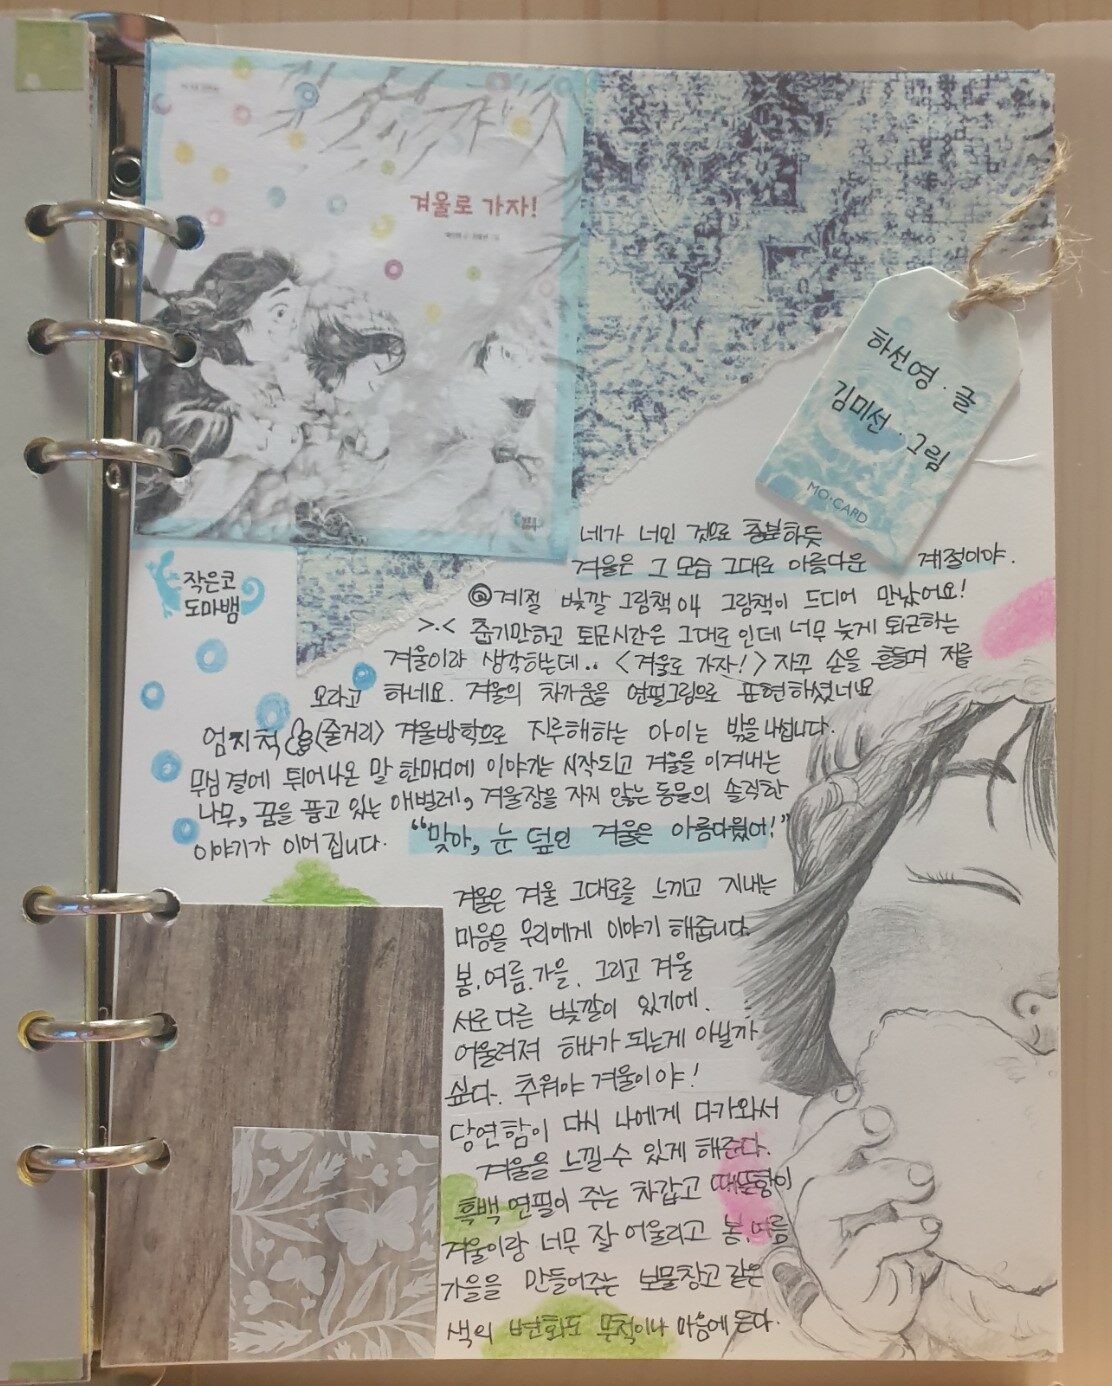 겨울로 가자!
하선영 · 글
김미선 · 그림
MO·CARD
네가 너인 것으로 충분하듯
겨울은 그 모습 그대로 아름다운 계절이야.
작은코
도마뱀
계절 빛깔 그림책 04 그림책이 드디어 만났어요!
>.< 춥기만하고 퇴근시간은 그대로인데 너무 늦게 퇴근하는
겨울이라 생각하는데.. <겨울로 가자!> 자꾸 손을 흔들며 저를
오라고 하네요. 겨울의 차가움을 연필그림으로 표현하셨너요
엄지척 <줄거리> 겨울방학으로 지루해하는 아이는 밖을 나섭니다.
무심결에 튀어나온 말 한마디에 이야기는 시작되고 겨울을 이겨내는
나무, 꿈을 품고 있는 애벌레, 겨울잠을 자지 않는 동물의 솔직한
이야기가 이어집니다. "맞아, 눈 덮인 겨울은 아름다웠어!"
겨울은 겨울 그대로를 느끼고 지내는
마음을 우리에게 이야기 해줍니다.
봄, 여름, 가을, 그리고 겨울
서로 다른 빛깔이 있기에.
어울려져 하나가 되는게 아닐까
싶다. 추워야 겨울이야!
당연함이 다시 나에게 다가와서
겨울을 느낄수 있게 해준다.
흑백 연필이 주는 차갑고 때뜻함이
겨울이랑 너무 잘 어울리고 봄, 여름
가을을 만들어주는 보물창고 같은
색의 변화도 무척이나 마음에 든다.